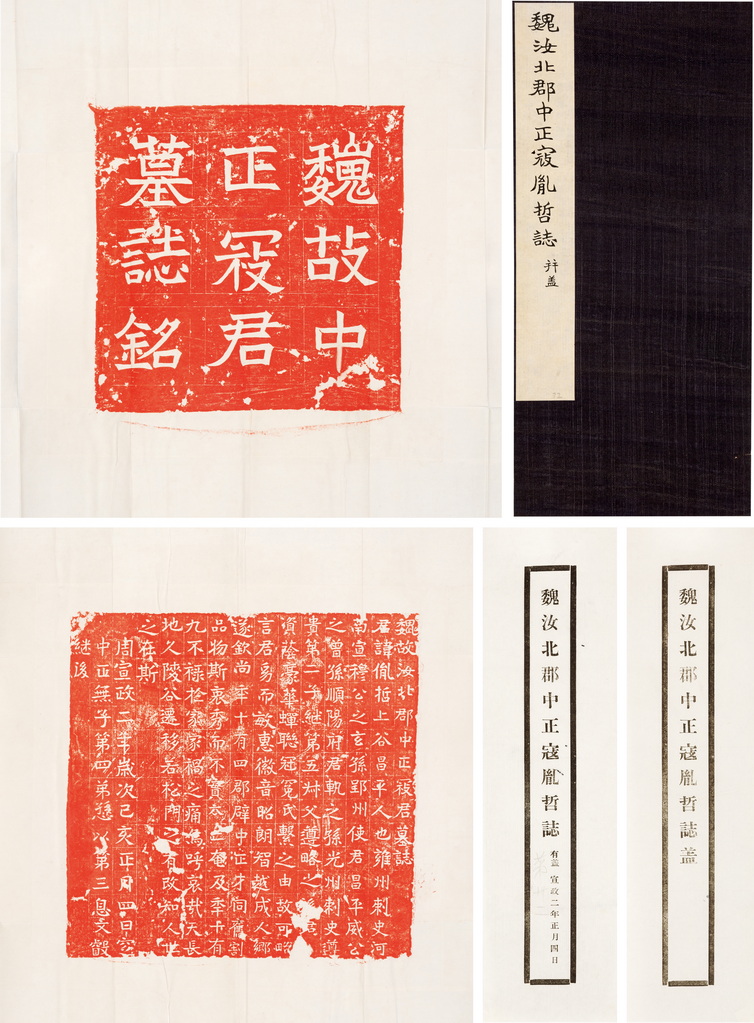 魏故中
正寇君
墓誌銘
魏汝北郡中正寇胤哲誌 并蓋
魏故汝北郡中正寇君墓誌
君諱胤哲上谷昌平人也雍州刺史河
南宣穆公之玄孫郢州使君昌平威公
之曾孫順陽府君軌之孫光州刺史遵
貴第二子継第五叔父遵略之後君
資蔭豪華蟬聯冠冕氏繫之由故可略
言君易而敏惠徽音昭朗智越成人鄉
遂欽尚年十有四郡辟中正才同舊割
品物斯哀秀而不實奄及年十有
九不禄於家家禍之痛嗚呼哀哉天長
地久陵谷遷移若松門之有改知人世
之在斯
周宣政二年歲次己亥正月四日窆
中正無子第四弟慈以第三息文叡
継後
魏汝北郡中正寇胤哲誌 有蓋 宣政二年正月四日
魏汝北郡中正寇胤哲誌蓋